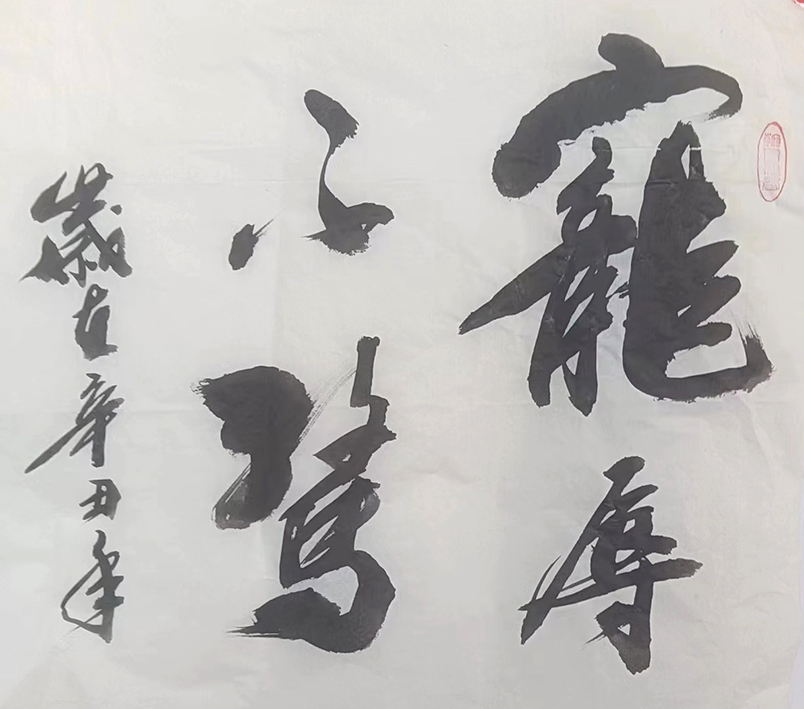 寵辱
不驚
歲在辛丑年